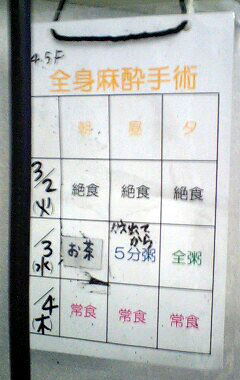 4.5F
全身麻酔手術
朝 昼 夕
3/2 (火) 絶食 絶食 絶食
3/3 (水) お茶 出てから 5分粥 全粥
3/4 (木) 常食 常食 常食